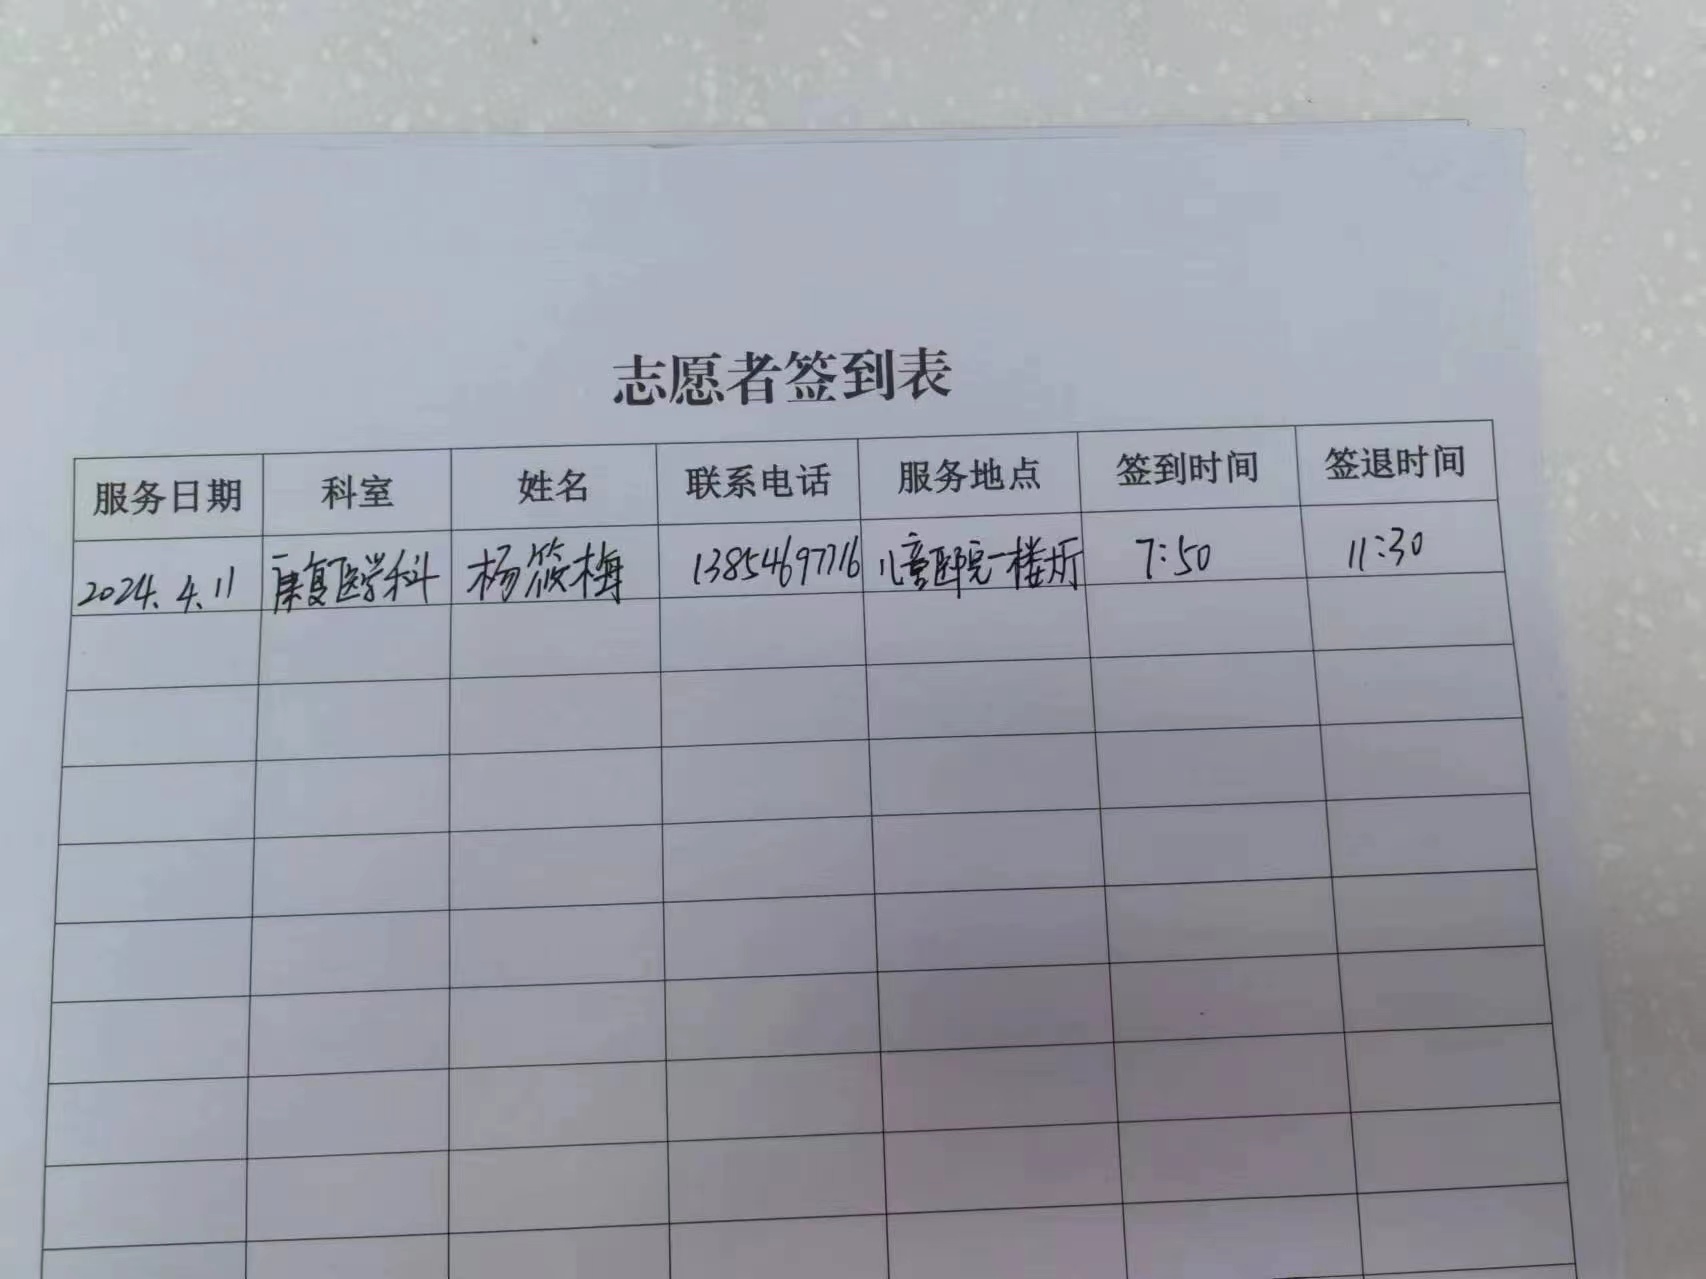 志愿者签到表
服务日期 科室 姓名 联系电话 服务地点 签到时间 签退时间
2024.4.11 康复医学科 杨筱梅 13854697716 儿童医院一楼所 7:50 11:30